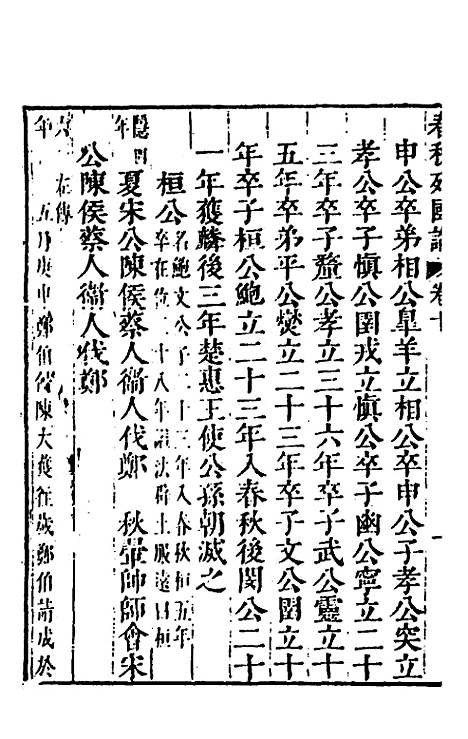 春秋列國論 卷十
申公卒弟相公臯羊立相公卒申公子孝公突立
孝公卒子慎公圉戎立慎公卒子幽公寧立二十
三年卒子釐公孝立三十六年卒子武公靈立十
五年卒弟平公燮立二十三年卒子文公圉立十
年卒子桓公鮑立二十三年入春秋後閔公二十
一年獲麟後三年楚惠王使公孫朝滅之
桓公名鮑文公子二十三年入春秋桓五年
卒在位三十八年諡法辟土服遠曰桓
隱四年 夏宋公陳侯蔡人衞人伐鄭 秋翬帥師會宋
公陳侯蔡人衞人伐鄭
在傳
年 五月庚申鄭伯侵陳大獲往歲鄭伯請成於